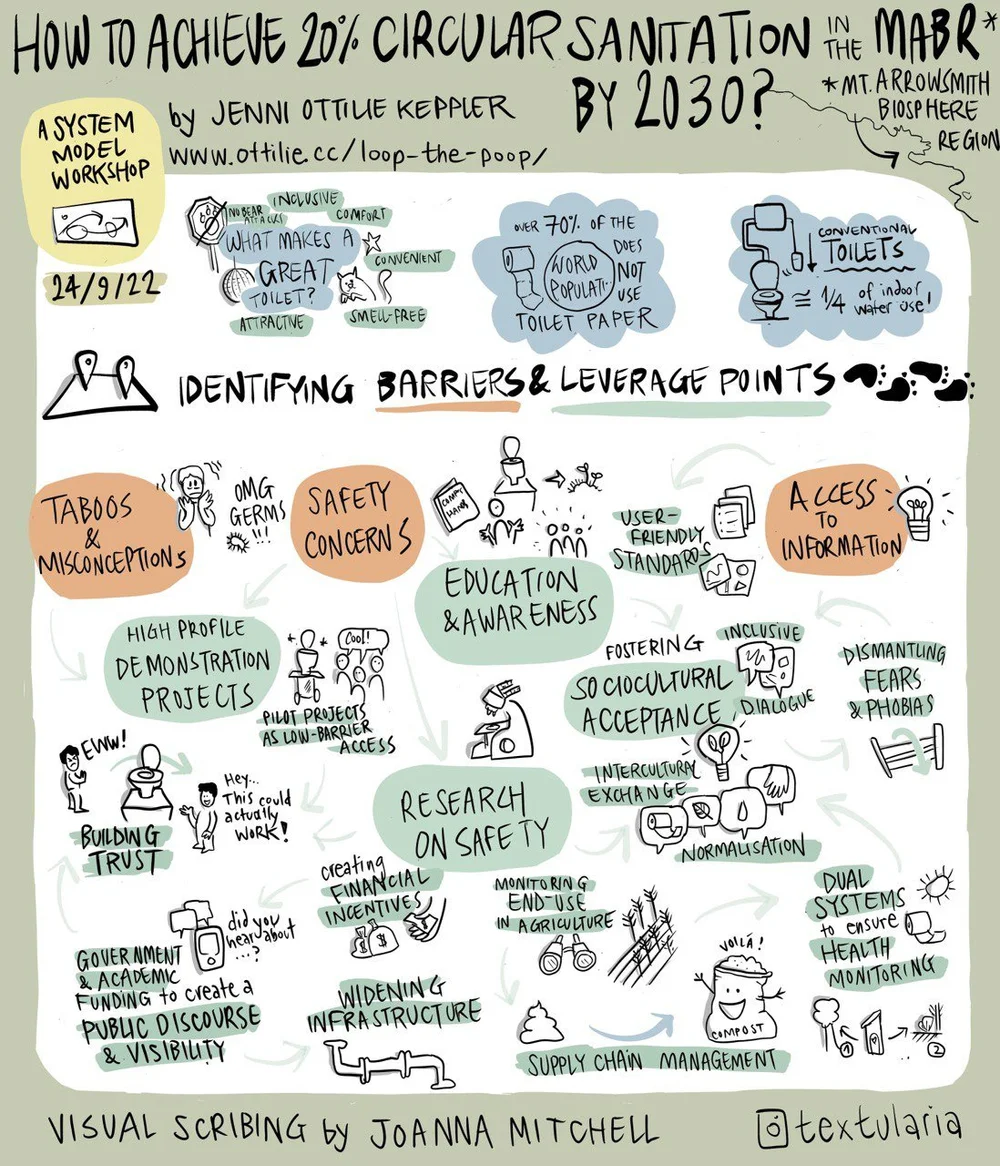 HOW TO ACHIEVE 20% CIRCULAR SANITATION IN THE MABR*
BY 2030?
*MT. ARROWSMITH
BIOSPHERE
REGION
by JENNI OTTILIE KEPPLER
www.ottilie.cc/loop-the-poop/
A SYSTEM
MODEL
WORKSHOP
24/9/22
NO BEAR
ATTACKS
INCLUSIVE
COMFORT
WHAT MAKES A
GREAT
TOILET?
CONVENIENT
ATTRACTIVE
SMELL-FREE
OVER 70% OF THE
WORLD
POPULATI
DOES
NOT
USE
TOILET PAPER
CONVENTIONAL
TOILETS
≅ 1/4 of indoor
water use!
IDENTIFYING BARRIERS & LEVERAGE POINTS
TABOOS
&
MISCONCEPTIONS
OMG
GERMS
!!!
SAFETY
CONCERNS
EDUCATION
& AWARENESS
USER-
FRIENDLY
STANDARDS
ACCESS
TO
INFORMATION
HIGH PROFILE
DEMONSTRATION
PROJECTS
COOL!
PILOT PROJECTS
AS LOW-BARRIER
ACCESS
FOSTERING
SOCIOCULTURAL
ACCEPTANCE
INCLUSIVE
DIALOGUE
DISMANTLING
FEARS
& PHOBIAS
EWW!
Hey...
This could
actually
WORK!
BUILDING
TRUST
RESEARCH
ON SAFETY
INTERCULTURAL
EXCHANGE
NORMALISATION
creating
FINANCIAL
INCENTIVES
$
$
MONITORING
END-USE
IN AGRICULTURE
DUAL
SYSTEMS
to ensure
HEALTH
MONITORING
1
2
did you
hear about
...?
GOVERNMENT
& ACADEMIC
FUNDING to create a
PUBLIC DISCOURSE
& VISIBILITY
WIDENING
INFRASTRUCTURE
VOILÁ!
COMPOST
SUPPLY CHAIN MANAGEMENT
VISUAL SCRIBING by JOANNA MITCHELL
textularia